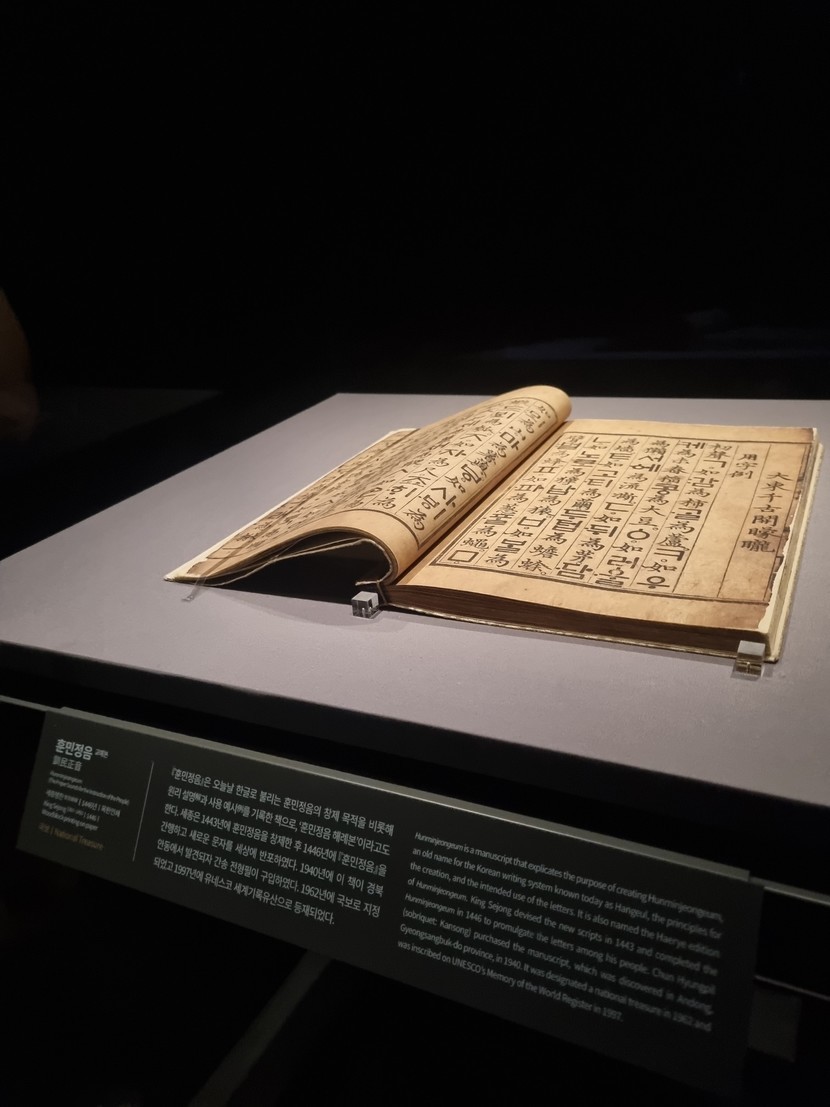 大東千古開矇矓
用字例
初聲ㄱ。如감為柿。ᄀᆞᆯ為蘆。ㅋ。如우
케為未舂稻。콩為大豆。ㆁ。如러울
為獺。서에為流凘。ㄷ。如뒤為茅。담
為墻。ㅌ。如고티為繭。두텁為蟾蜍。
ㄴ。如노로為獐。납為猿。ㅂ。如
為蜂。ㅍ。如파為葱。為蠅。ㅁ
如뫼為山。마為薯藇。ㅸ。如사ᄫᅵ為
훈민정음
訓民正音
Hunminjeongeum
(The Proper Sounds for the Instruction of the People)
King Sejong 1446
Woodblock printing on paper
국보 | National Treasure
『훈민정음』은 오늘날 한글로 불리는 훈민정음의 창제 목적을 비롯해
원리 설명解과 사용 예시例를 기록한 책으로, '훈민정음 해례본'이라고도
한다. 세종은 1443년에 훈민정음을 창제한 후 1446년에 『훈민정음』을
간행하고 새로운 문자를 세상에 반포하였다. 1940년에 이 책이 경북
안동에서 발견되자 간송 전형필이 구입하였다. 1962년에 국보로 지정
되었고 1997년에 유네스코 세계기록유산으로 등재되었다.
Hunminjeongeum is a manuscript that explicates the purpose of creating Hunminjeongeum,
an old name for the Korean writing system known today as Hangeul, the principles for
the creation, and the intended use of the letters. It is also named the Haerye edition
of Hunminjeongeum. King Sejong devised the new scripts in 1443 and completed the
Hunminjeongeum in 1446 to promulgate the letters among his people. Chun Hyungpil
(sobriquet: Kansong) purchased the manuscript, which was discovered in Andong,
Gyeongsangbuk-do province, in 1940. It was designated a national treasure in 1962 and
was inscribed on UNESCO's Memory of the World Register in 1997.